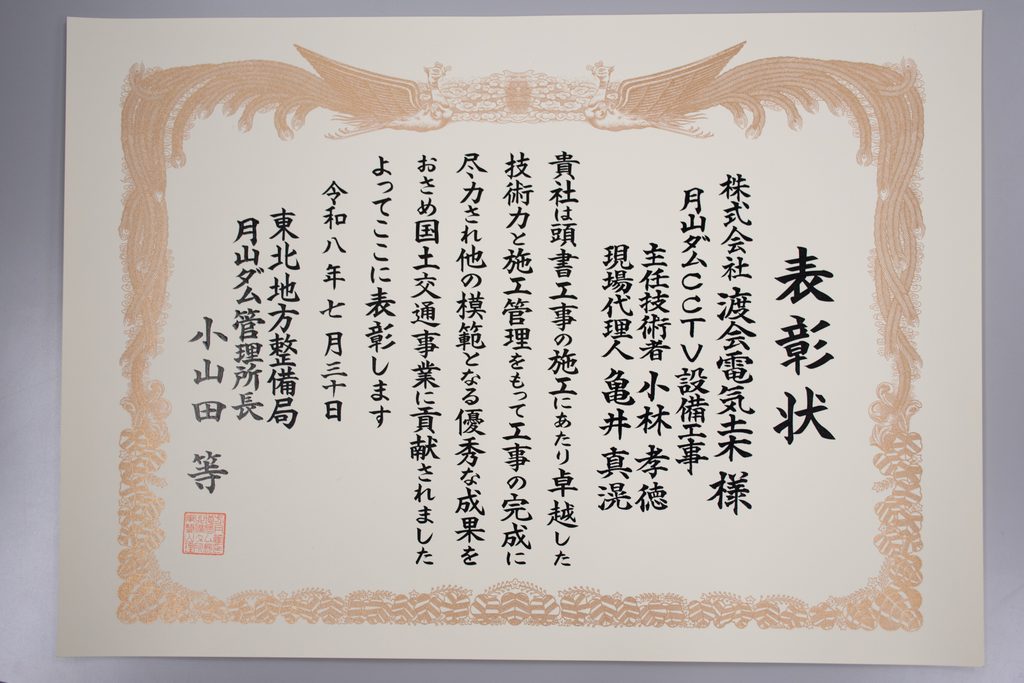 表彰状
株式会社 渡会電気土木 様
月山ダムCCTV設備工事
主任技術者 小林 孝徳
現場代理人 亀井 真滉
貴社は頭書工事の施工にあたり卓越した
技術力と施工管理をもって工事の完成に
尽力され他の模範となる優秀な成果を
おさめ国土交通事業に貢献されました
よってここに表彰します
令和八年七月三十日
東北地方整備局
月山ダム管理所長
小山田 等